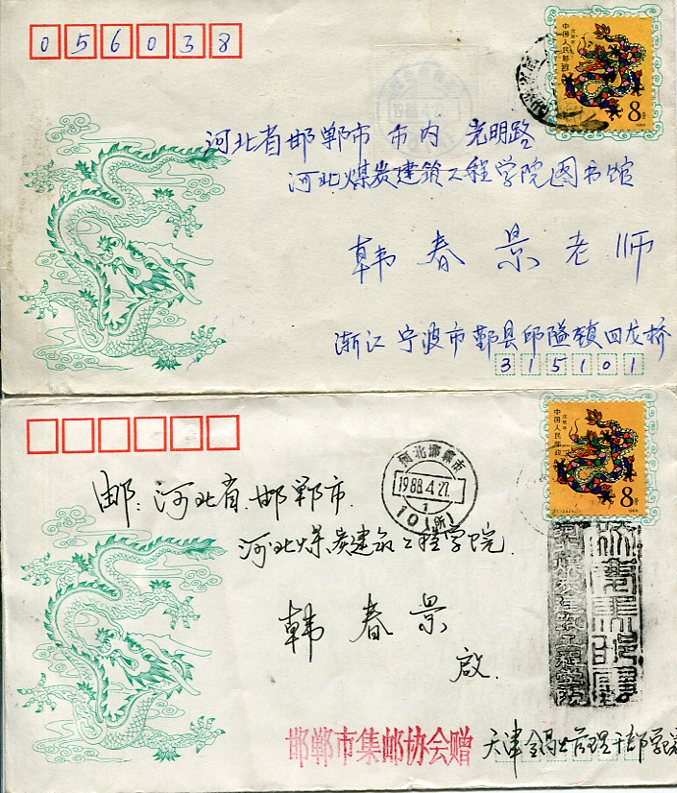 056038
中国人民邮政
8分
河北省邯郸市 市内 光明路
河北煤炭建筑工程学院图书馆
韩春景老师
浙江宁波市鄞县邱隘镇回龙桥
315101
中国人民邮政
8分
河北邯郸市
1988.4.27.
1
10(所)
邮:河北省.邯郸市.
河北煤炭建筑工程学院.
韩春景
启.
邯郸市集邮协会赠
天津
管理干部学院